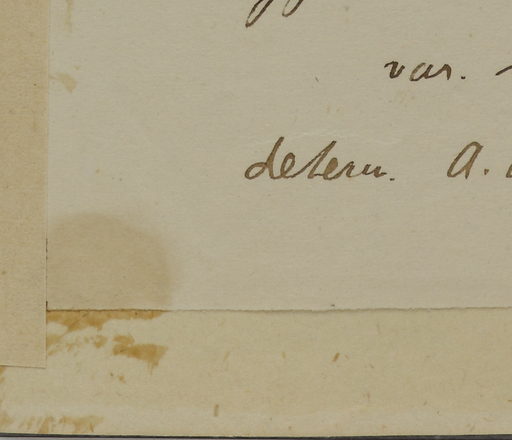 var.
determ. A.